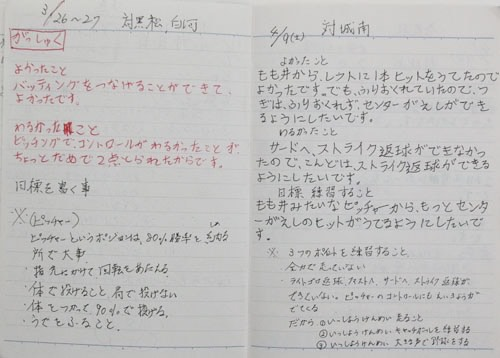 3/26〜27 対黒松,白河
がっしゅく
よかったこと
バッティングをつなげることができて、
よかったです。
わるかったこと
ピッチングで、コントロールがわるかったことです。
ちょっとだめで2点とられたからです。
目標を書く事
※(ピッチャー)
・ピッチャーというポジションは、80%勝手を
所で大事
・指先にかけて回転をあたえる
・体で投げること 肩で投げない
・体をつかって、90%で投げる。
・うでをふること。
4/9(土) 対城南
よかったこと
もも井から、レフトに1本ヒットをうてたので
よかったです。でも、ふりおくれていたので、つ
ぎは、ふりおくれず、センターがえしができ
るようにしたいです。
わるかったこと
サードへ、ストライク返球ができなかっ
たので、こんどは、ストライク返球ができる
ようにしたいです。
目標、練習すること
もも井みたいなピッチャーから、もっとセンタ
ーがえしのヒットがうてるようにしたいで
す。
※ 3つのポイントを練習すること、
全力で走っていない
ライトゴロ返球、ファーストへ、サードへ、ストライク返球が
できていない。ピッチャーのコントロールにも
でてくる
だから ①いっしょうけんめい走ること
②いっしょうけんめいキャッチボールを練習する
③いっしょうけんめい 大きな声で野球をする